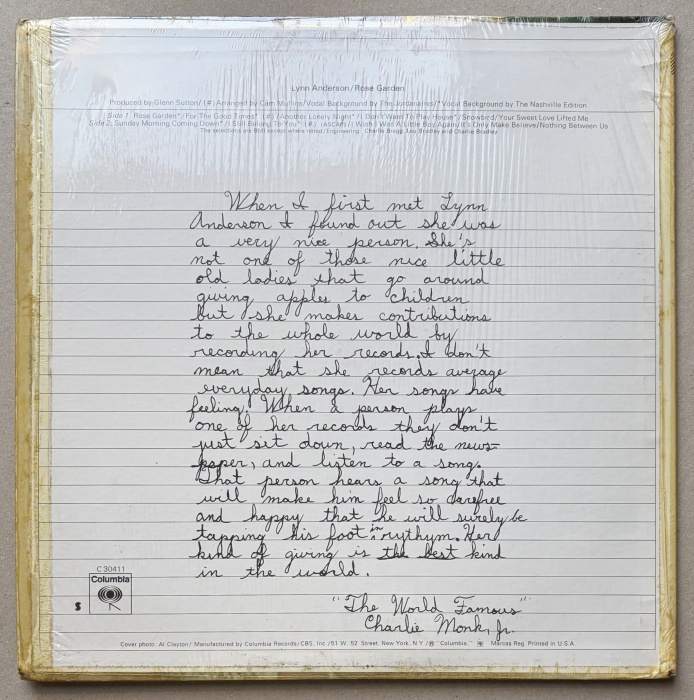 Lynn Anderson/Rose Garden
Produced by Glenn Sutton/(#) Arranged by Cam Mullins/Vocal Background by The Jordanaires/*Vocal Background by The Nashville Edition
Side 1 Rose Garden*/For The Good Times* (#)/Another Lonely Night*/I Don't Want To Play House*/Snowbird/Your Sweet Love Lifted Me
Side 2 Sunday Morning Coming Down*/I Still Belong To You* (#)/I Wish I Was A Little Boy Again/It's Only Make Believe/Nothing Between Us
The selections are BMI except where noted/Engineering: Charlie Bragg, Lou Bradley and Charlie Bradley
When I first met Lynn
Anderson I found out she was
a very nice person. She's
not one of those nice little
old ladies that go around
giving apples to children
but she makes contributions
to the whole world by
recording her records. I don't
mean that she records average
everyday songs. Her songs have
feeling. When a person plays
one of her records they don't
just sit down, read the news-
paper, and listen to a song.
That person hears a song that
will make him feel so carefree
and happy that he will surely be
tapping his foot in rythym. Her
kind of giving is the best kind
in the world.
"The World Famous"
Charlie Monk, Jr.
C 30411
Columbia
S
Cover photo: Al Clayton/Manufactured by Columbia Records/CBS, Inc./51 W. 52 Street, New York, N.Y./® "Columbia," Marcas Reg. Printed in U.S.A.